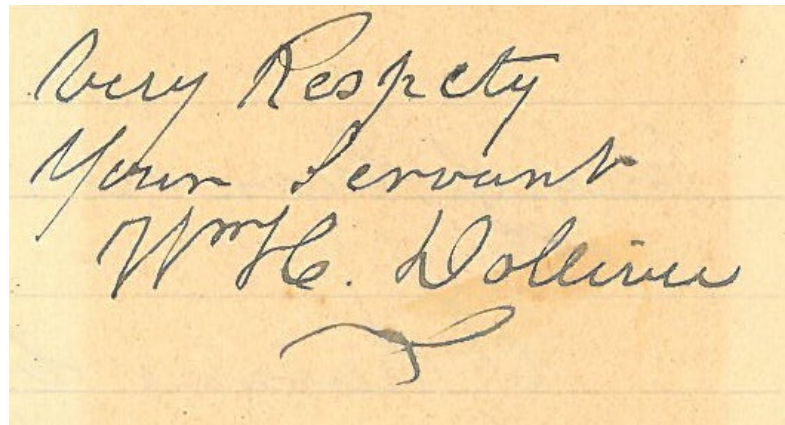 Very Respcty
Your Servant
Wm H. Dolliver